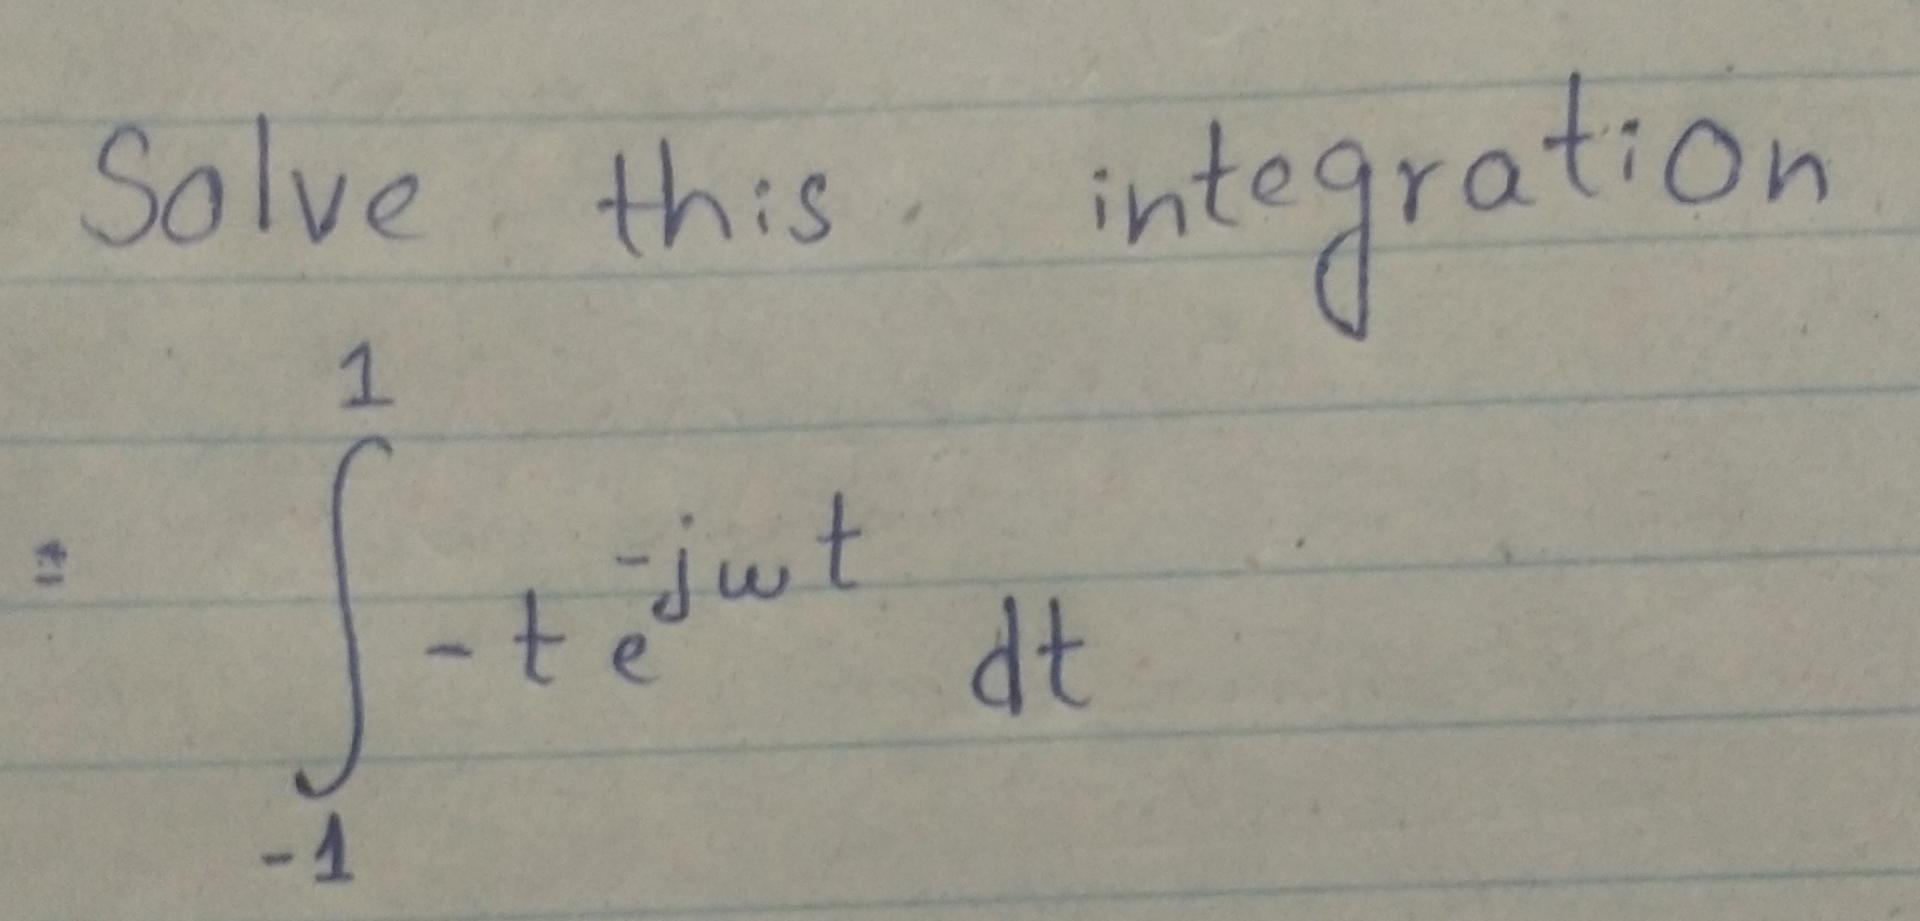 Solve this integration
1
= ∫ -t e^{-jωt} dt
-1